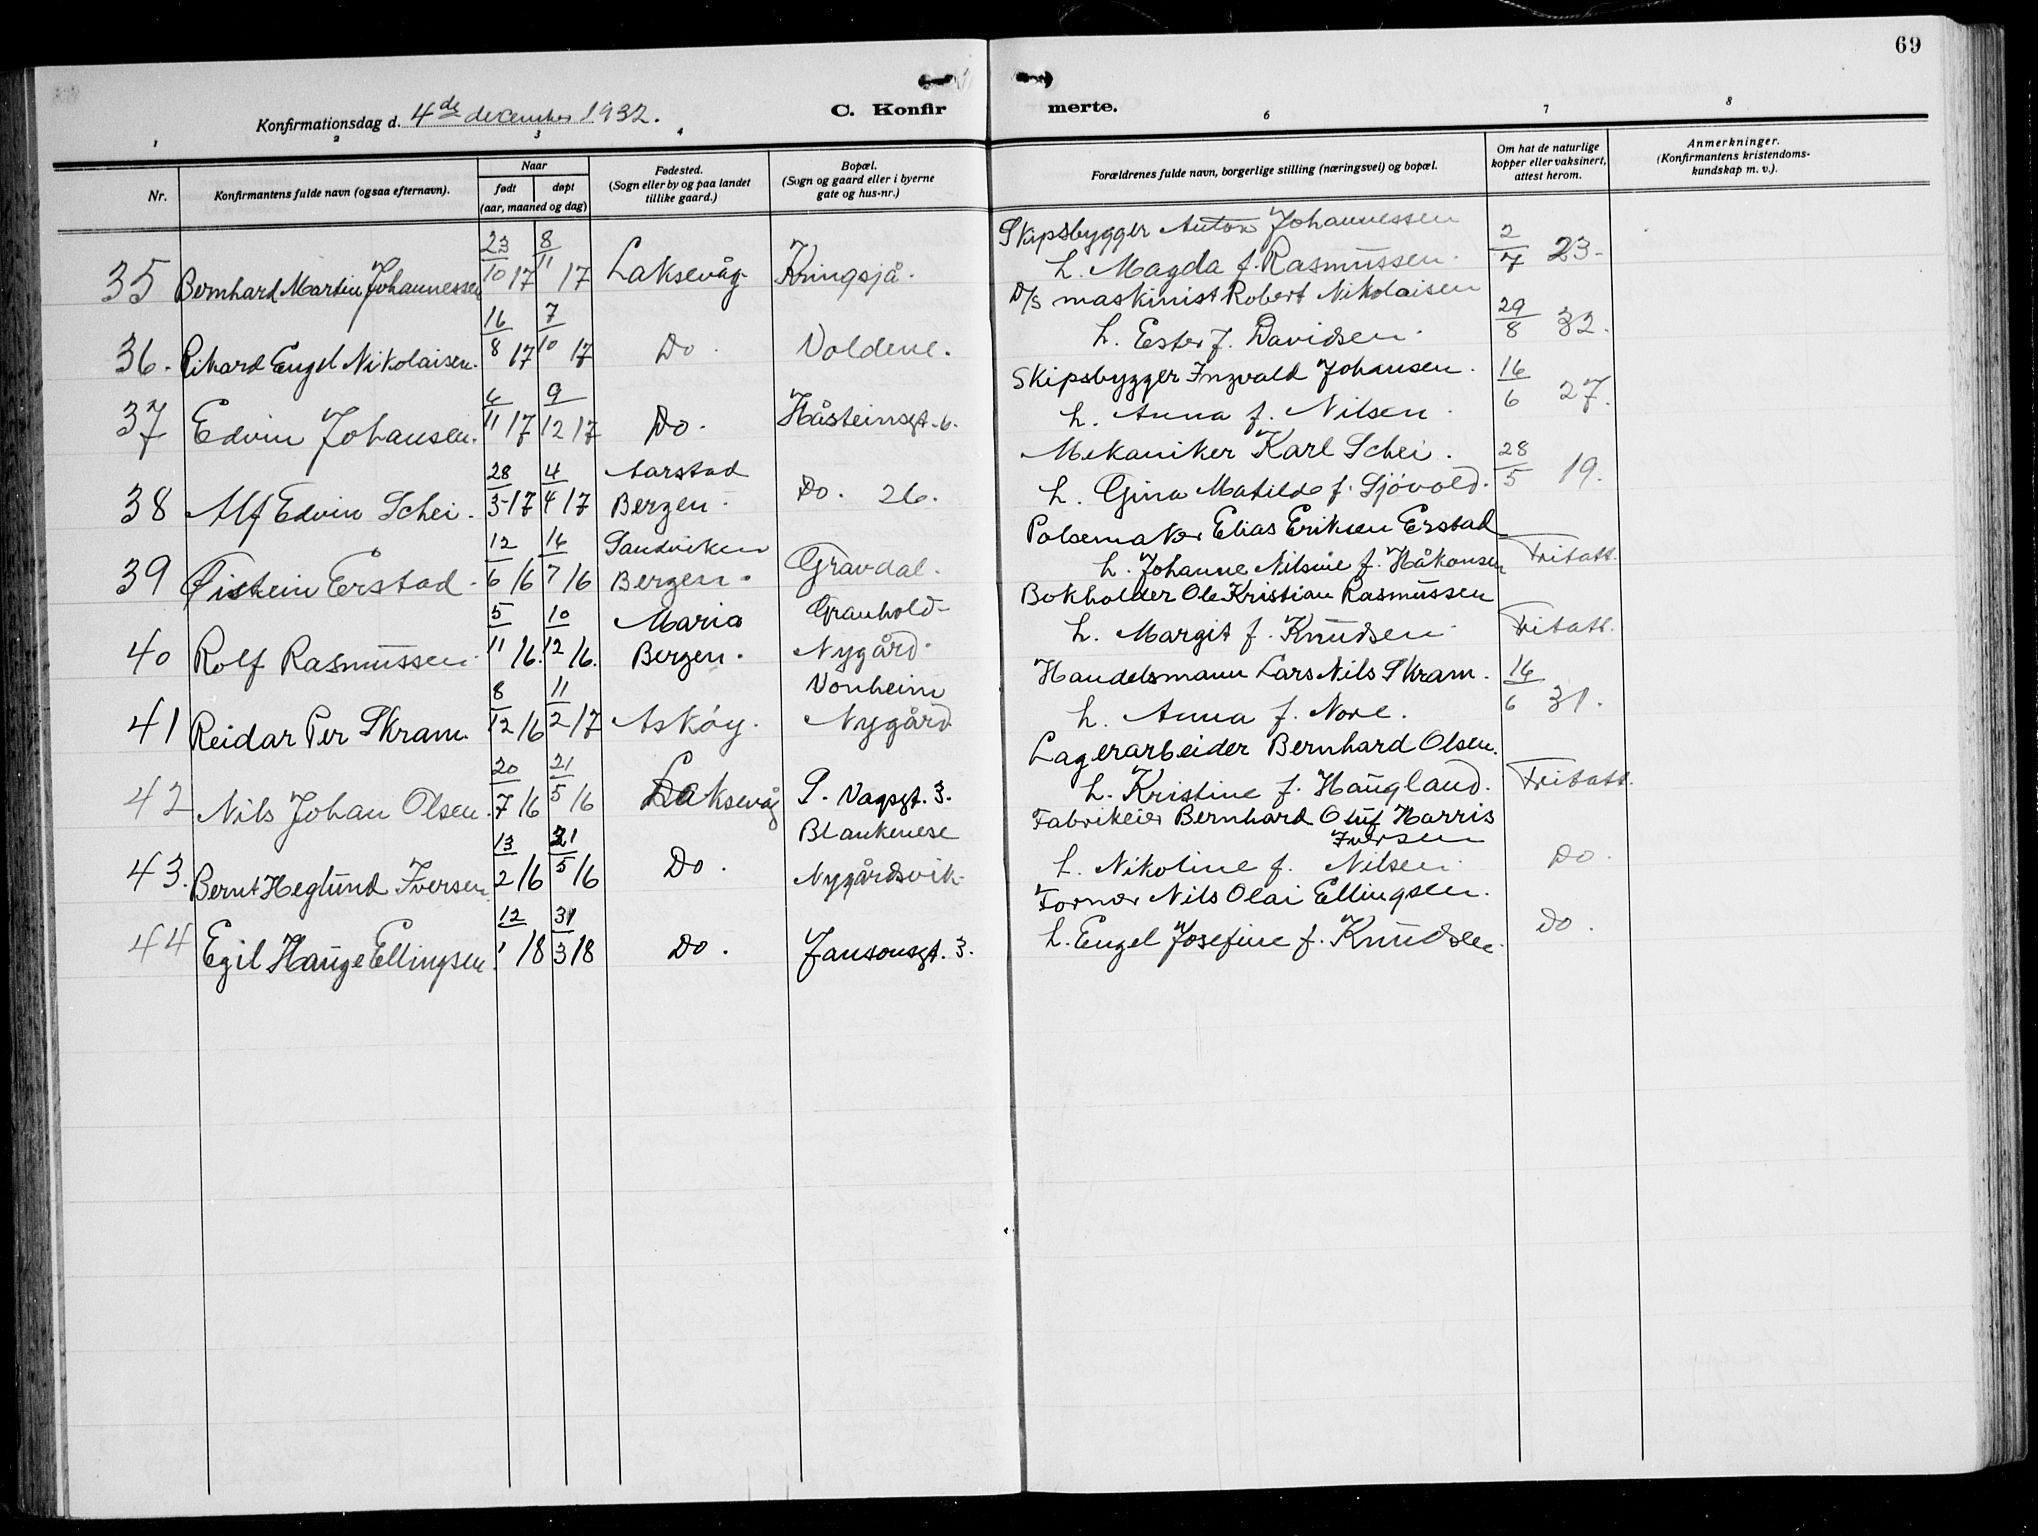 69
Konfirmationsdag d. 4de december 1932.
C. Konfirmerte.
1 2 3 4 6 7 8
Nr.
Konfirmantens fulde navn (ogsaa efternavn).
Naar
født
døpt
(aar, maaned og dag)
Fødested.
(Sogn eller by og paa landet
tillike gaard.)
Bopæl.
(Sogn og gaard eller i byerne
gate og hus-nr.)
Forældrenes fulde navn, borgerlige stilling (næringsvei) og bopæl.
Om hat de naturlige
kopper eller vaksinert,
attest herom.
Anmerkninger.
(Konfirmantens kristendoms-
kundskap m. v.).
35 Bernhard Martin Johannessen 23/10 17 8/11 17 Laksevåg Kringsjå.
Skipsbygger Anton Johannessen
h. Magda f. Rasmussen. 2/7 23-
36. Rihard Engel Nikolaisen. 16/8 17 7/10 17 Do. Voldene.
D/s maskinist Robert Nikolaisen
h. Ester f. Davidsen. 29/8 32.
37 Edvin Johansen. 6/11 17 9/12 17 Do. Håsteinsgt. 6.
Skipsbygger Ingvald Johansen.
h. Anna f. Nilsen. 16/6 27.
38 Alf Edvin Schei. 28/3-17 4/4 17 Aarstad
Bergen. Do. 26.
Mekaniker Karl Schei.
h. Gina Matilde f. Sjövold. 28/5 19.
39 Øistein Erstad. 12/6 16 16/7 16 Sandviken
Bergen. Gravdal.
Pølsemaker Elias Eriksen Erstad
h. Johanne Nilsine f. Håkonsen Fritatt.
40 Rolf Rasmussen 5/11 16. 10/12 16. Maria
Bergen. Granhold-
Nygård.
Bokholder Ole Kristian Rasmussen
h. Margit f. Knudsen Fritatt.
41 Reidar Per Skram 8/12 16 11/2 17 Askøy. Vonheim
Nygård
Handelsmann Lars Nils Skram.
h. Anna f. Nore. 16/6 31.
42 Nils Johan Olsen. 20/7 16 21/5 16 Laksevåg P. Vagsgt. 3.
Lagerarbeider Bernhard Olsen.
h. Kristine f. Haugland. Fritatt.
43. Bernt Heglund Iversen 13/2 16 21/5 16 Do. Blankenese
Nygårdsvik
Fabrikeier Bernhard Oluf Harris
Iversen
h. Nikoline f. Nilsen. Do.
44 Egil Hauge Ellingsen. 12/1 18 31/3 18 Do. Jansonsgt. 3.
Former Nils Olai Ellingsen.
h. Engel Josefine f. Knudsen. Do.